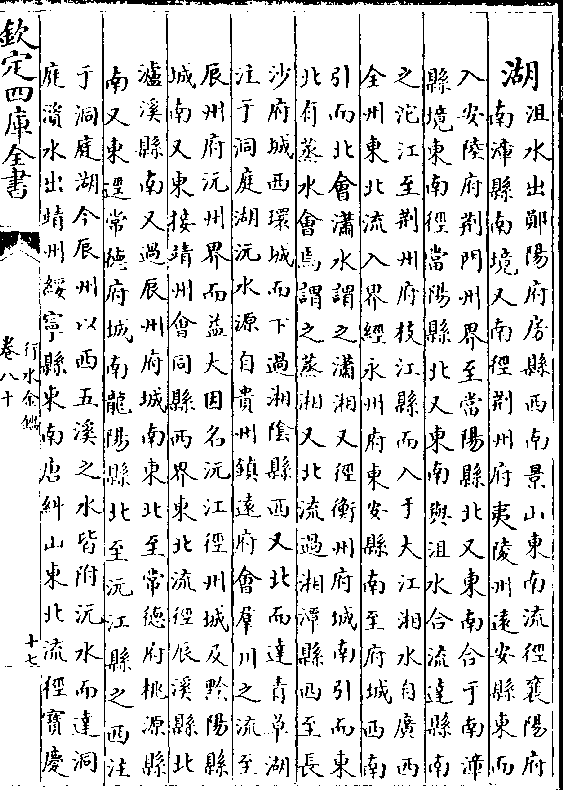 湖
沮水出鄖陽府房縣西南景山東南流徑襄陽府
南漳縣南境又南徑荆州府夷陵州遠安縣東而
入安陸府荆門州界至當陽縣北又東南合于南漳
縣境東南徑當陽縣北又東南與沮水合流達縣南
之沱江至荆州府枝江縣而入于大江湘水自廣西
全州東北流入界經永州府東安縣南至府城西南
引而北會瀟水謂之瀟湘又徑衡州府城南引而東
北有蒸水會焉謂之蒸湘又北流過湘潭縣西至長
沙府城西環城而下過湘隂縣西又北而達青草湖
注于洞庭湖沅水源自貴州鎮遠府會羣川之流至
辰州府沅州界而益大因名沅江徑州城及黔陽縣
城南又東接靖州會同縣西界東北流徑辰溪縣北
瀘溪縣南又過辰州府城南東北至常德府桃源縣
南又東遶常德府城南龍陽縣北至沅江縣之西注
于洞庭湖今辰州以西五溪之水皆附沅水而達洞
庭澬水出靖州綏寧縣東南唐糾山東北流徑寶慶
欽定四庫全書
行水金鑑
卷八十
十七